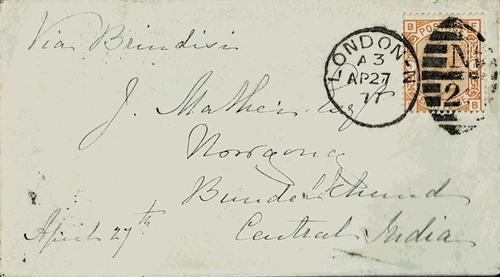 Via Brindisi
LONDON · N
A3
AP27
77
N
2
POSTAGE
B
B
J. Mathers Esq
Nowgong
Bundelkhund
Central India
April 27th